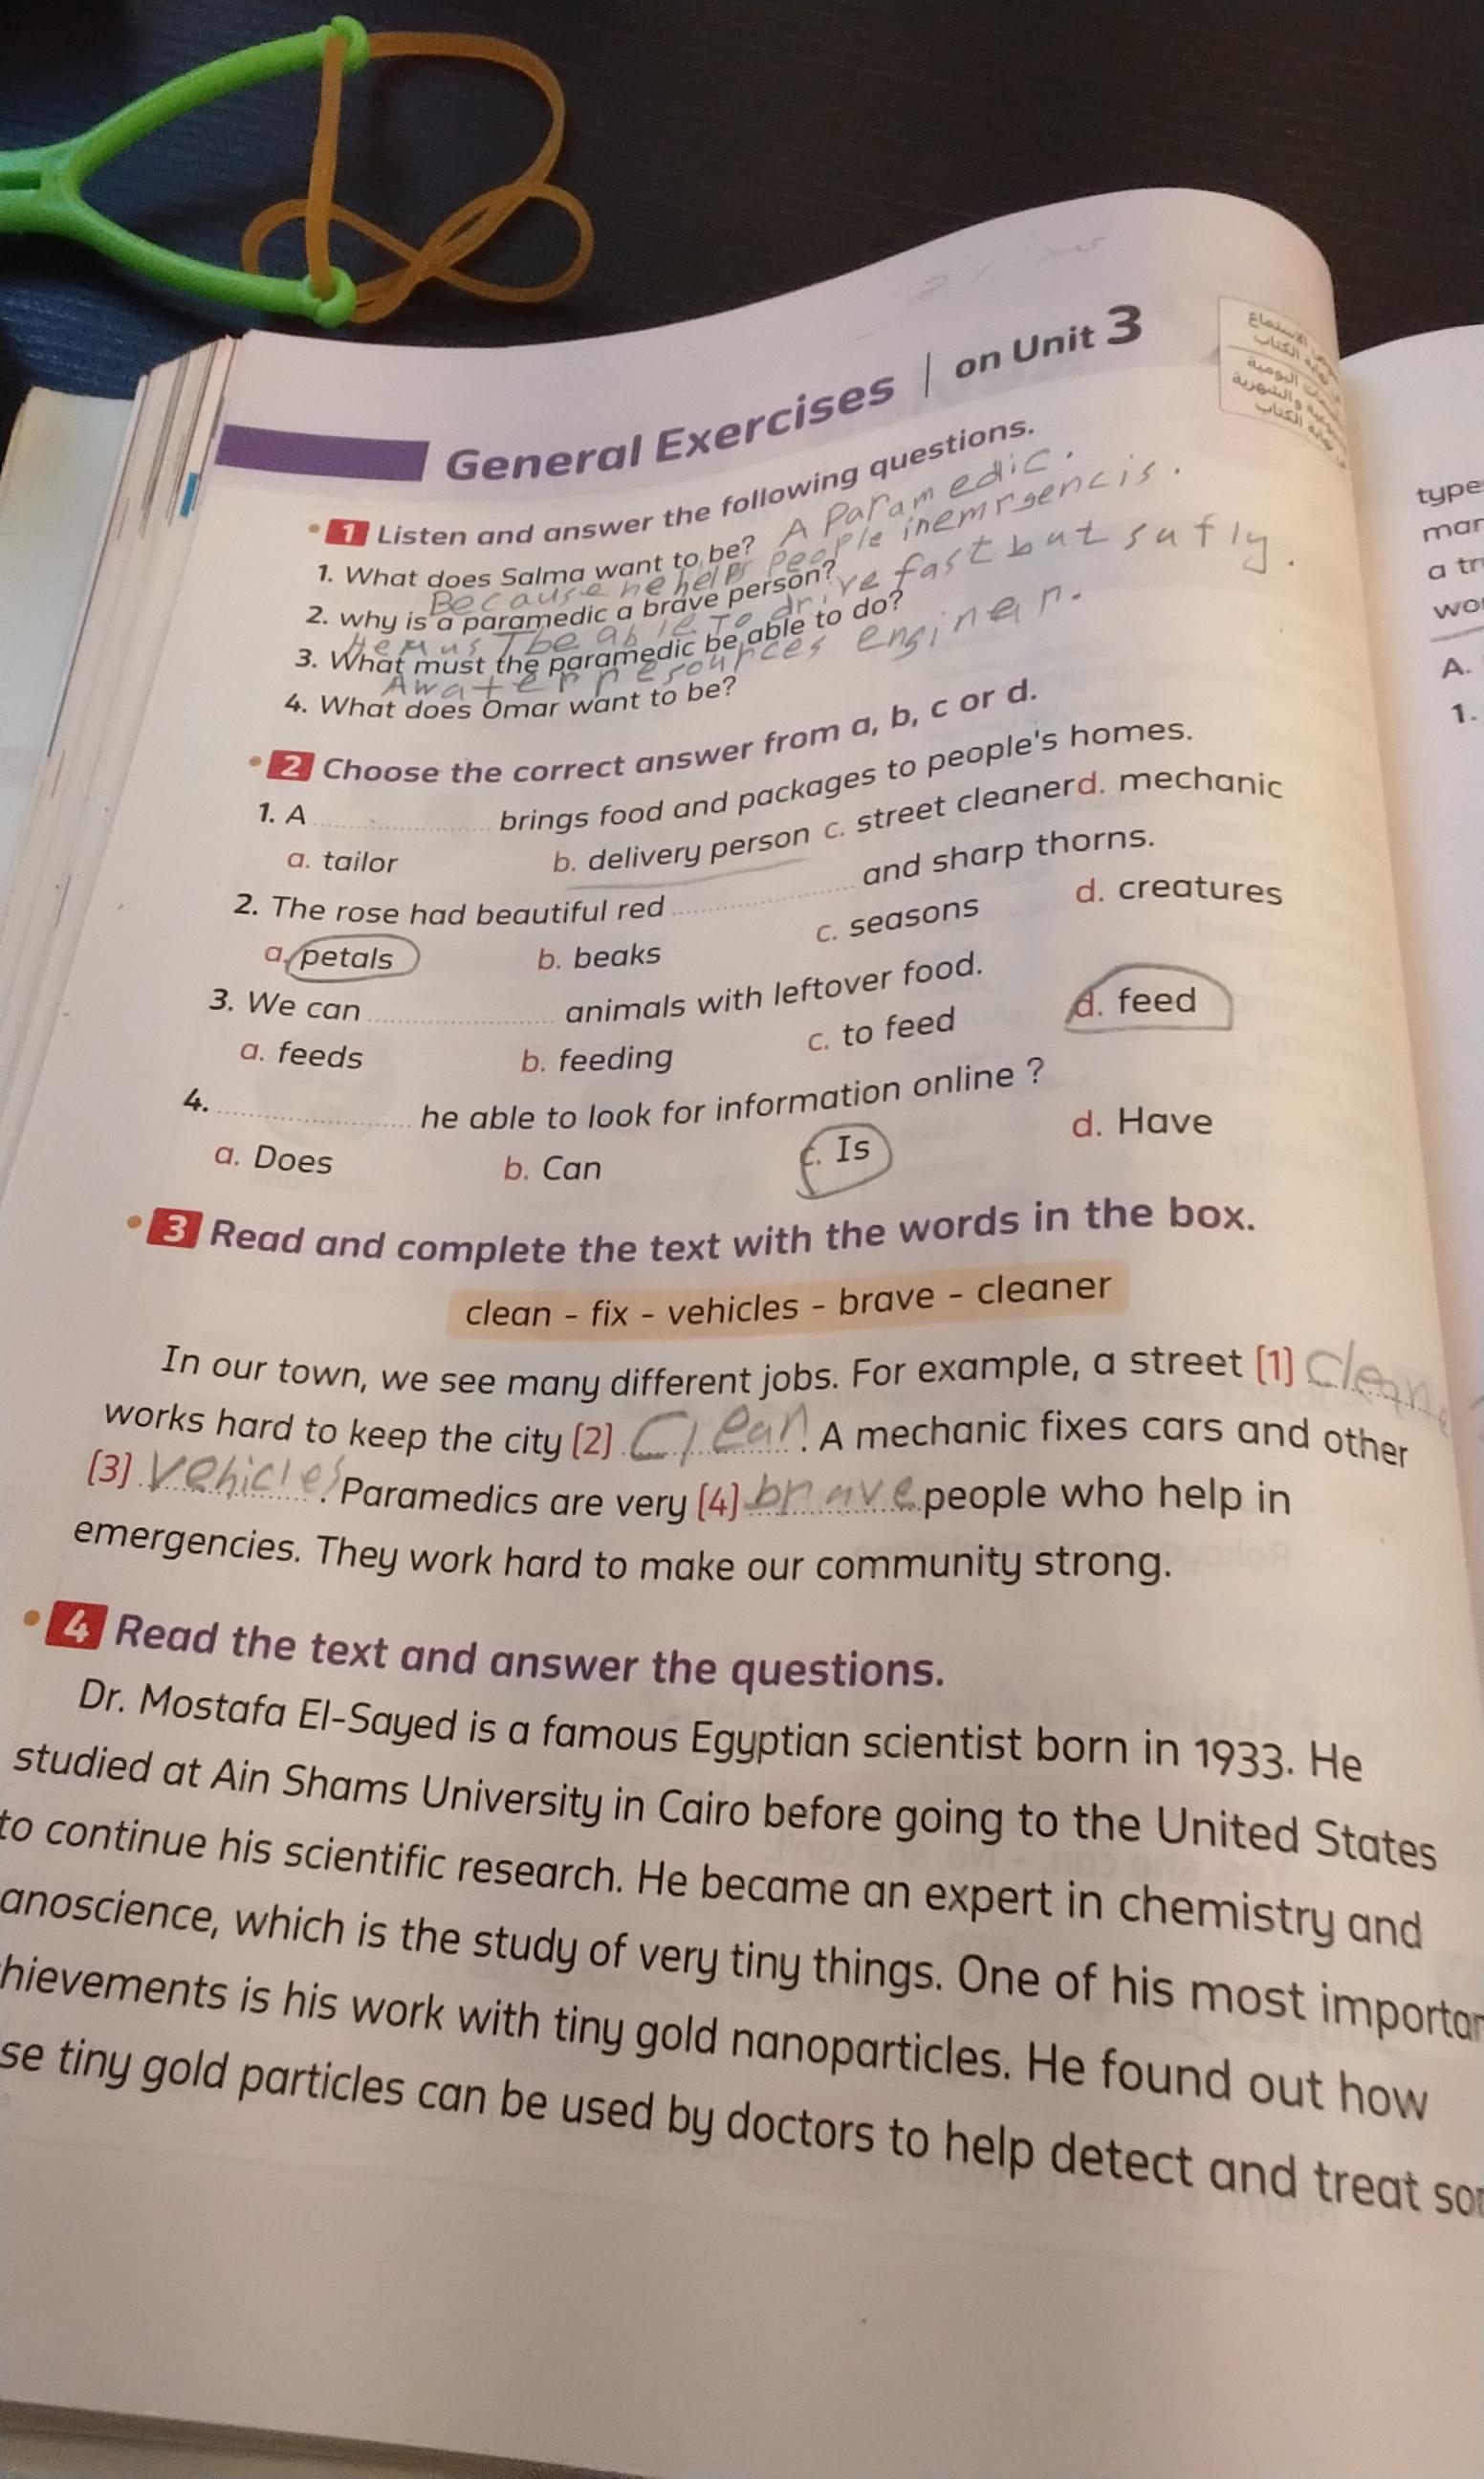 General Exercises | on Unit 3
1 Listen and answer the following questions.
1. What does Salma want to be? A Paramedic.
Because he helps people inemrgencis.
2. why is a paramedic a brave person?
He mus T be able To drive fast but safly.
3. What must the paramedic be able to do?
A water resources enginer.
4. What does Omar want to be?
2 Choose the correct answer from a, b, c or d.
1. A .................... brings food and packages to people's homes.
a. tailor b. delivery person c. street cleaner d. mechanic
2. The rose had beautiful red .................... and sharp thorns.
a. petals b. beaks c. seasons d. creatures
3. We can .................... animals with leftover food.
a. feeds b. feeding c. to feed d. feed
4. .................... he able to look for information online ?
a. Does b. Can c. Is d. Have
3 Read and complete the text with the words in the box.
clean - fix - vehicles - brave - cleaner
In our town, we see many different jobs. For example, a street (1) Clean
works hard to keep the city (2) Clean. A mechanic fixes cars and other
(3) Vehicles. Paramedics are very (4) brave people who help in
emergencies. They work hard to make our community strong.
4 Read the text and answer the questions.
Dr. Mostafa El-Sayed is a famous Egyptian scientist born in 1933. He
studied at Ain Shams University in Cairo before going to the United States
to continue his scientific research. He became an expert in chemistry and
anoscience, which is the study of very tiny things. One of his most importan
hievements is his work with tiny gold nanoparticles. He found out how
se tiny gold particles can be used by doctors to help detect and treat so
type
mar
a tr
wo
A.
1.